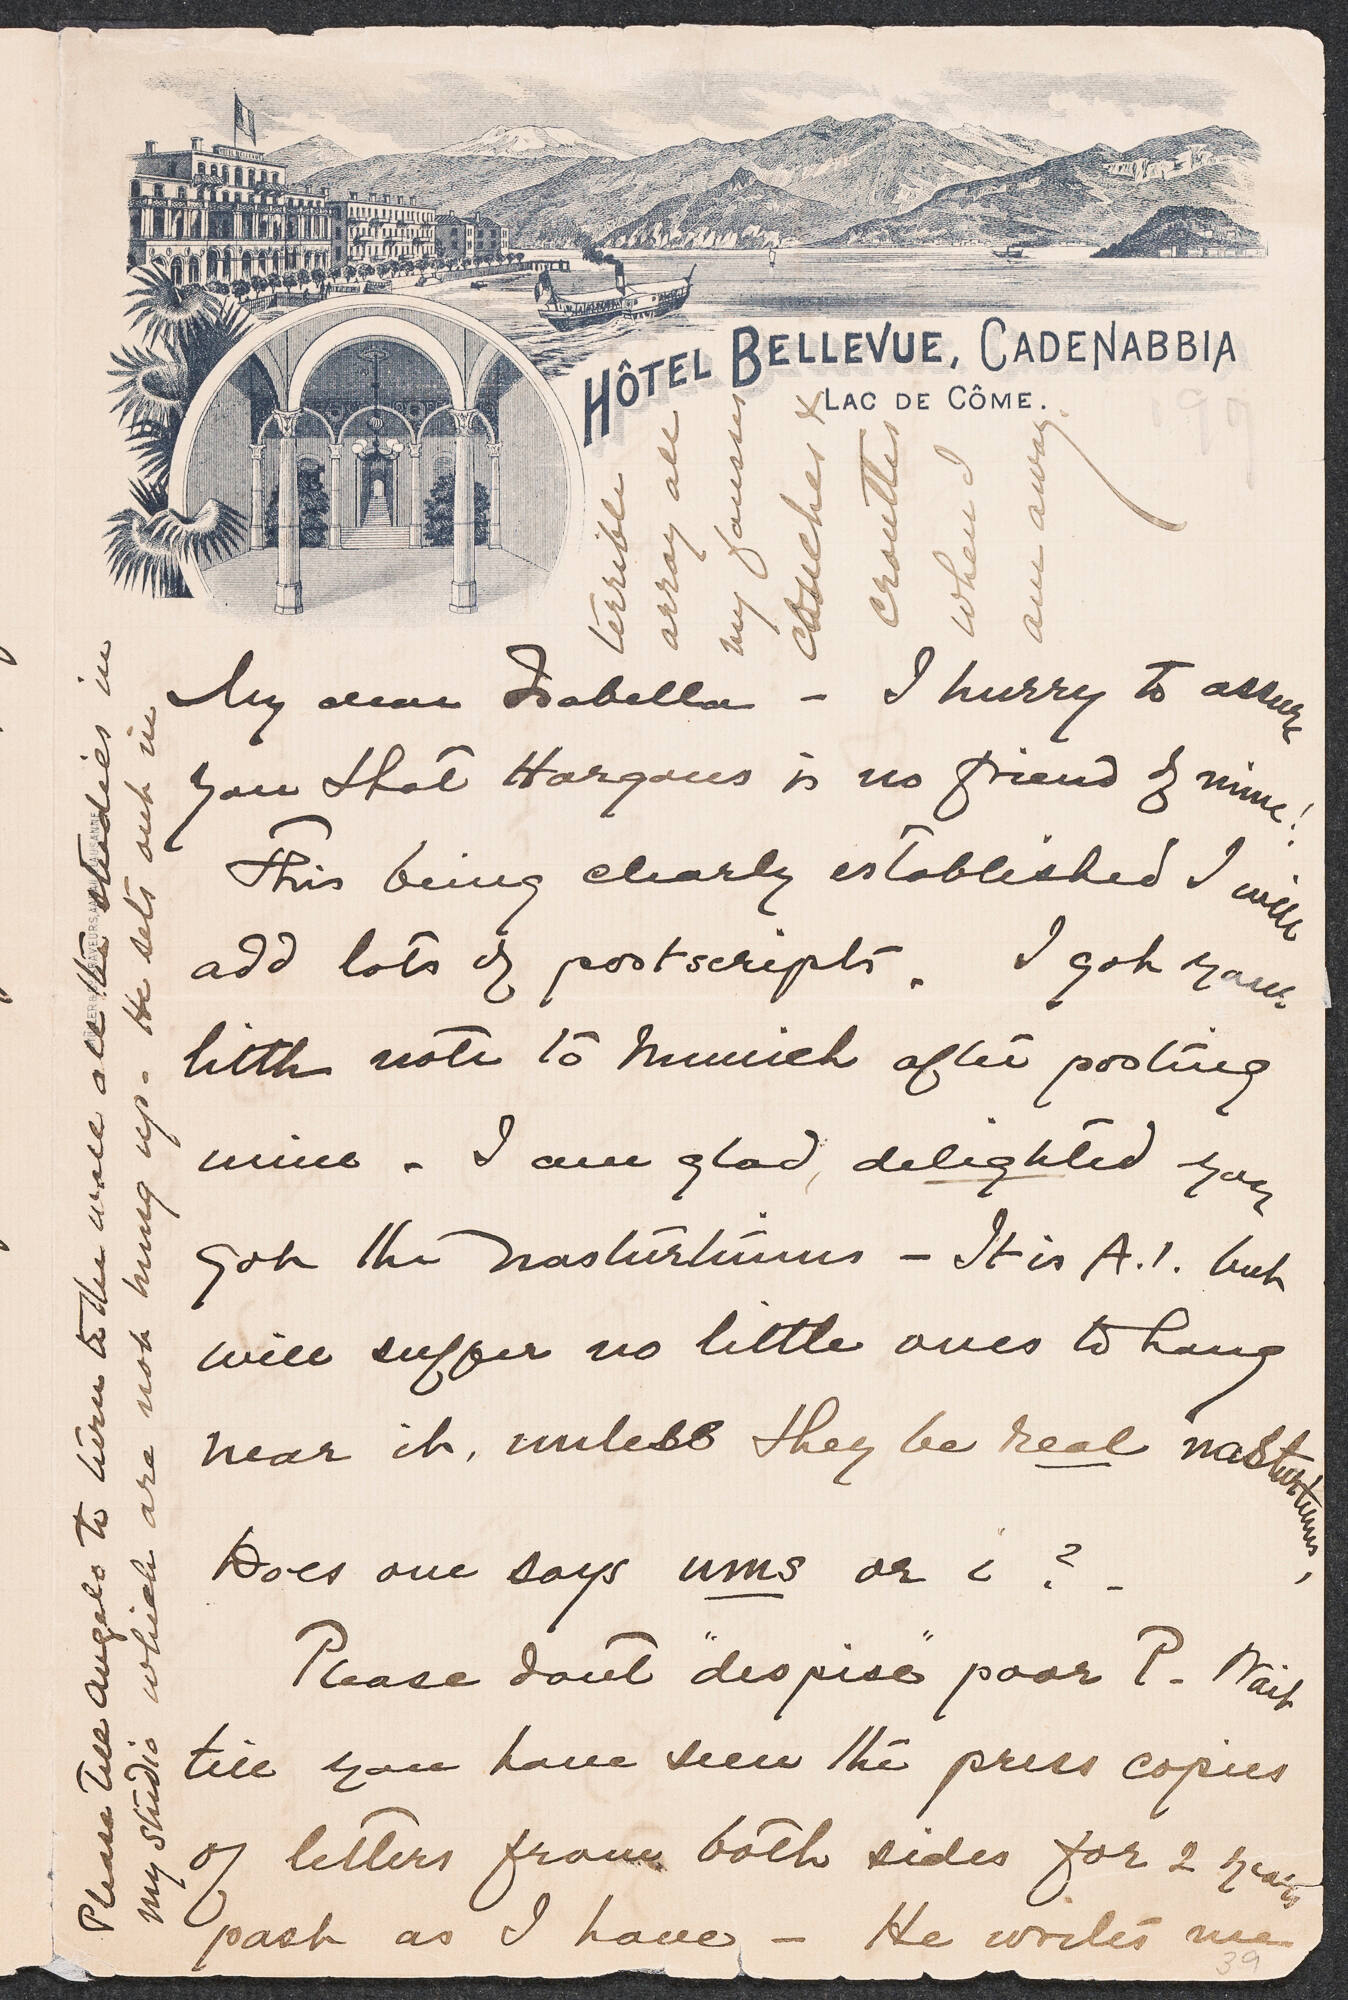 HÔTEL BELLEVUE, CADENABBIA
LAC DE CÔME.
My dear Isabella – I hurry to assure
you that Hargous is no friend of mine!
This being clearly established I will
add lots of postscripts. I got your
little note to Munich after posting
mine. I am glad, delighted you
got the Nasturtiums – It is A.1. but
will suffer no little ones to hang
near it, unless they be real nasturtiums,
Does one say ums or i? –
Please dont "despise" poor P. Wait
till you have seen the press copies
of letters from both sides for 2 years
past as I have – He writes me
39
Please tell Angelo to turn to the wall all the studies in
my studio which are not hung up – He sets out in
terrible
array all
my fausses
couches &
croutes
when I
am away.